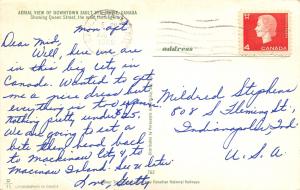 AERIAL VIEW OF DOWNTOWN SAULT STE. MARIE, CANADA
Showing Queen Street, the main thoroughfare
Mon aft.
Dear Mid,
Well, here we are
in this big city in
Canada. Wanted to get
me a new dress but
everything is too expen
nothing pretty under $25.
We are going to eat a
bite then head back
to Mackinaw City &
Macinac Island. See U later
Love, Betty
address
CANADA
4
Mildred Stephens
808 S Fleming St
Indianapolis Ind.
U.S.A
Canadian National Railways